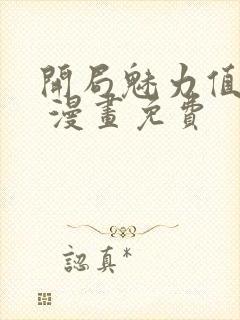 開局魅力值
漫畫免費
認真*